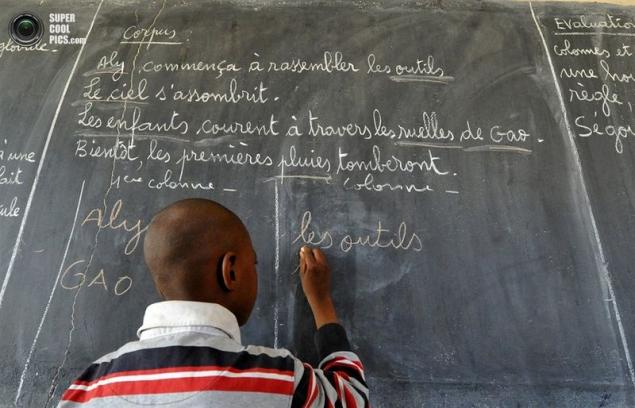 SUPER
COOL
PICS.com
Corpus:
Aly commença à rassembler les outils
Le ciel s'assombrit.
Les enfants courent à travers les ruelles de Gao.
Bientôt, les premières pluies tomberont.
1ère colonne – colonne –
Aly les outils
GAO
Evaluation
colonnes et
une
règle,
Ségou